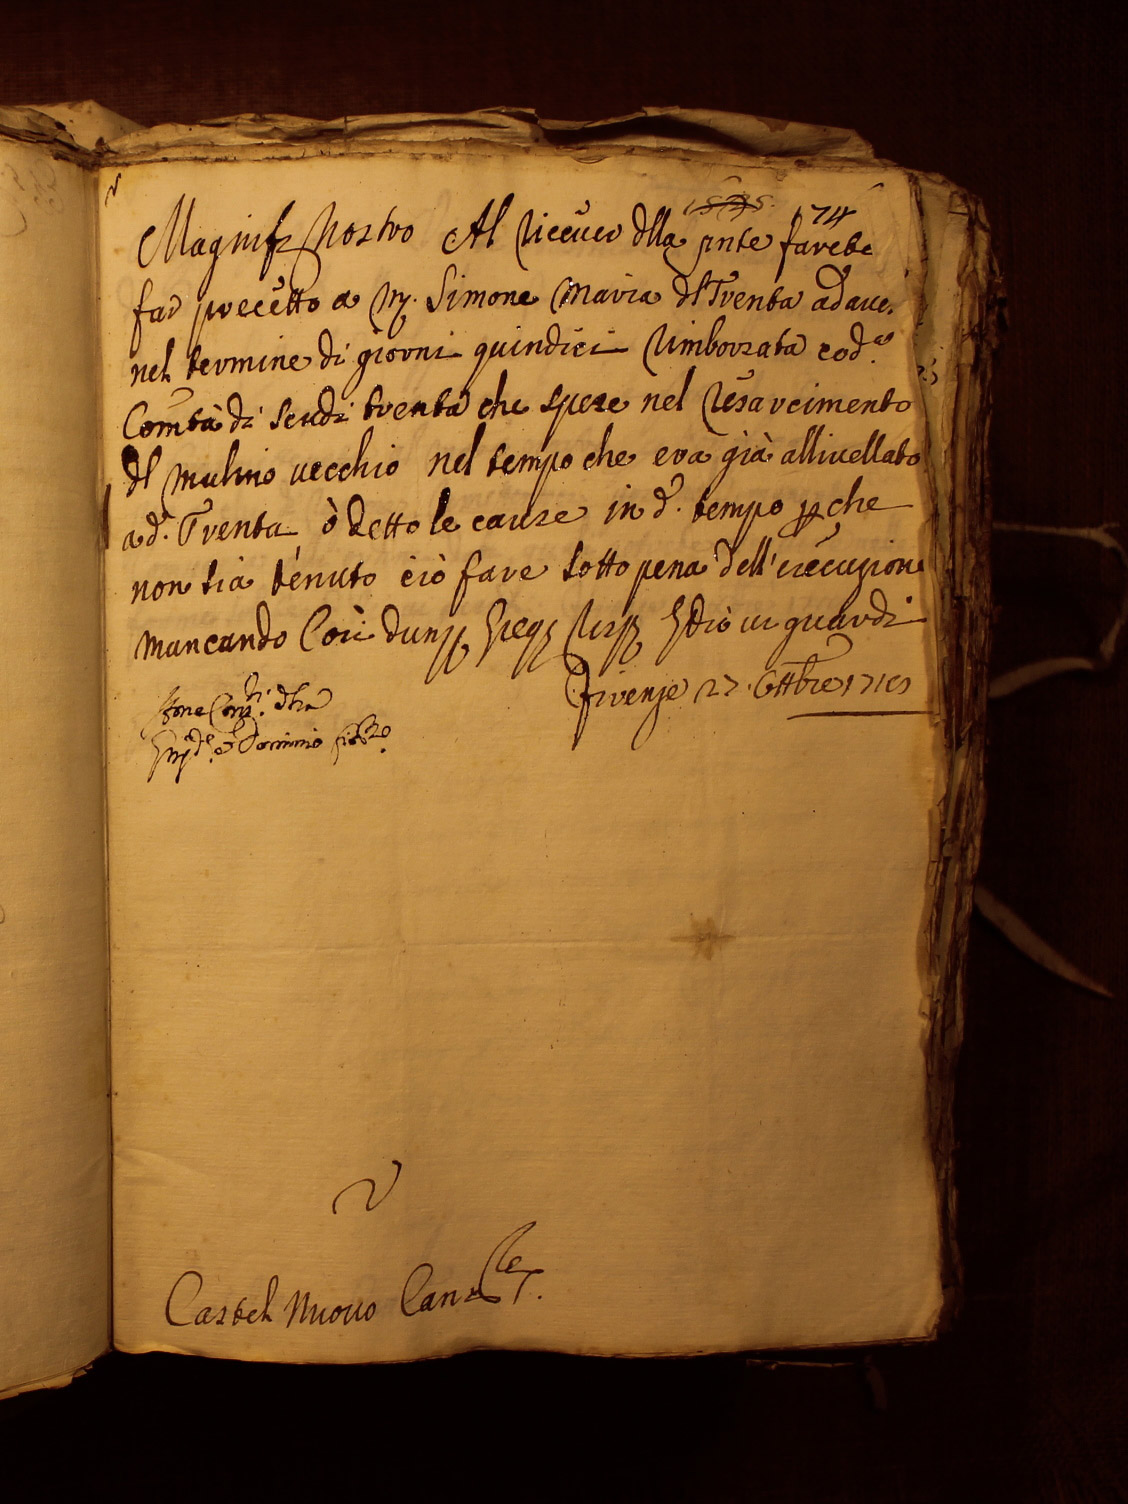 174
Magnif. Nostro Al riceuer dlla pnte farete
far precetto a Mr. Simone Maria dl Trenta ad auer
nel termine di giorni quindici rimborzata cod.a
Comtà di scudi trenta che spese nel resarcimento
dl mulino uecchio nel tempo che era già alliuellato
a d.o Trenta ò detto le cause in d.o tempo p che
non sia tenuto ciò fare sotto pena dell'esecuzione
mancando Così dunq
Dio ui guardi
Firenze 27. Ottbre
Dominio fior.no
Castel Nuouo Canc.re